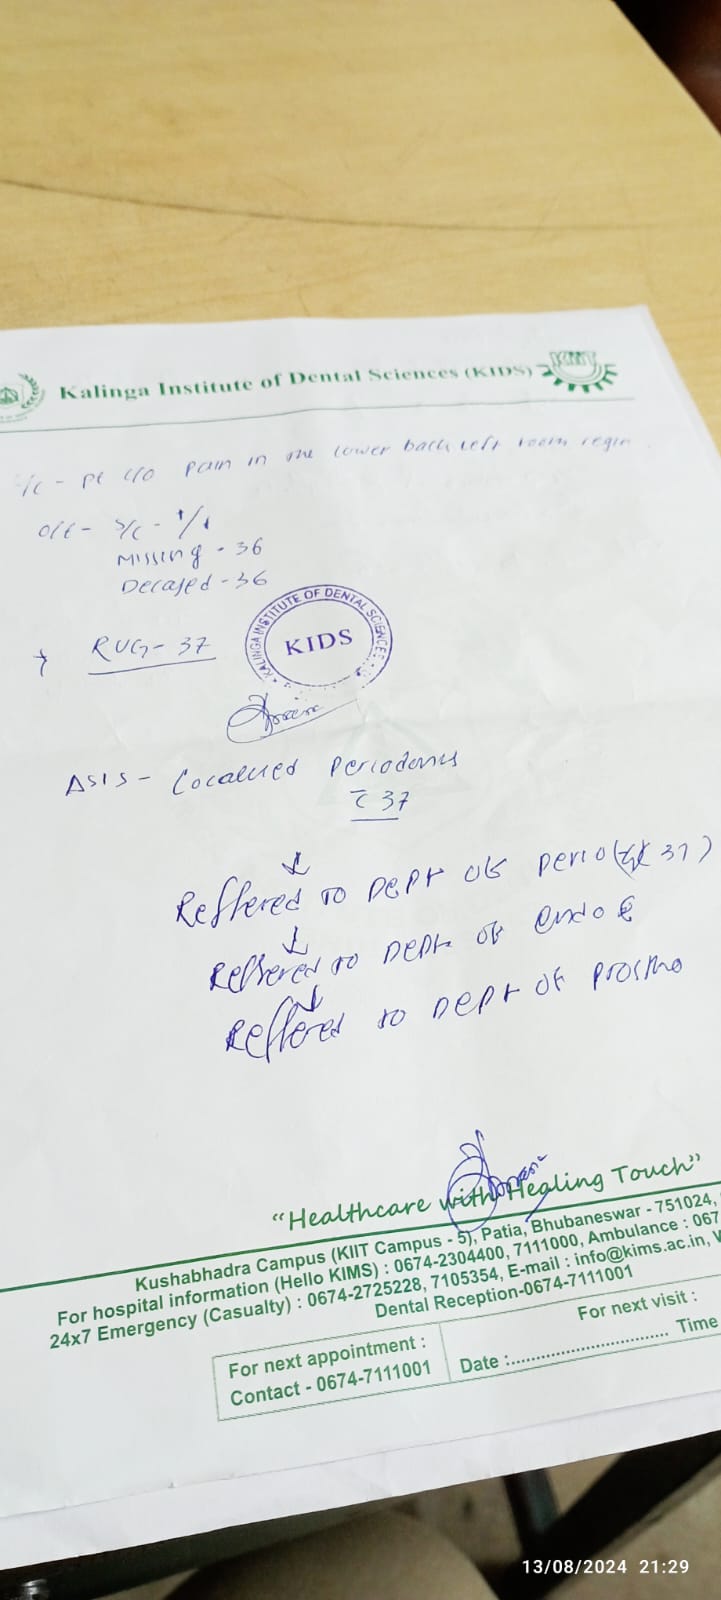 Kalinga Institute of Dental Sciences (KIDS)
KIIT
C/C - Pt C/O pain in the lower back left tooth region
O/E - S/C - +/+
Missing - 36
Decayed - 36
RVG - 37
KALINGA INSTITUTE OF DENTAL SCIENCES
KIDS
Localised Periodontitis
37
Reffered to Dept of perio 37)
Reffered to Dept of endo
Reffered to Dept of prostho
“Healthcare with Healing Touch”
Kushabhadra Campus (KIIT Campus - 5), Patia, Bhubaneswar - 751024,
For hospital information (Hello KIMS) : 0674-2304400, 7111000, Ambulance : 067
24x7 Emergency (Casualty) : 0674-2725228, 7105354, E-mail : info@kims.ac.in, W
Dental Reception-0674-7111001
For next appointment :
Contact - 0674-7111001
For next visit :
Date :.............................. Time
13/08/2024 21:29